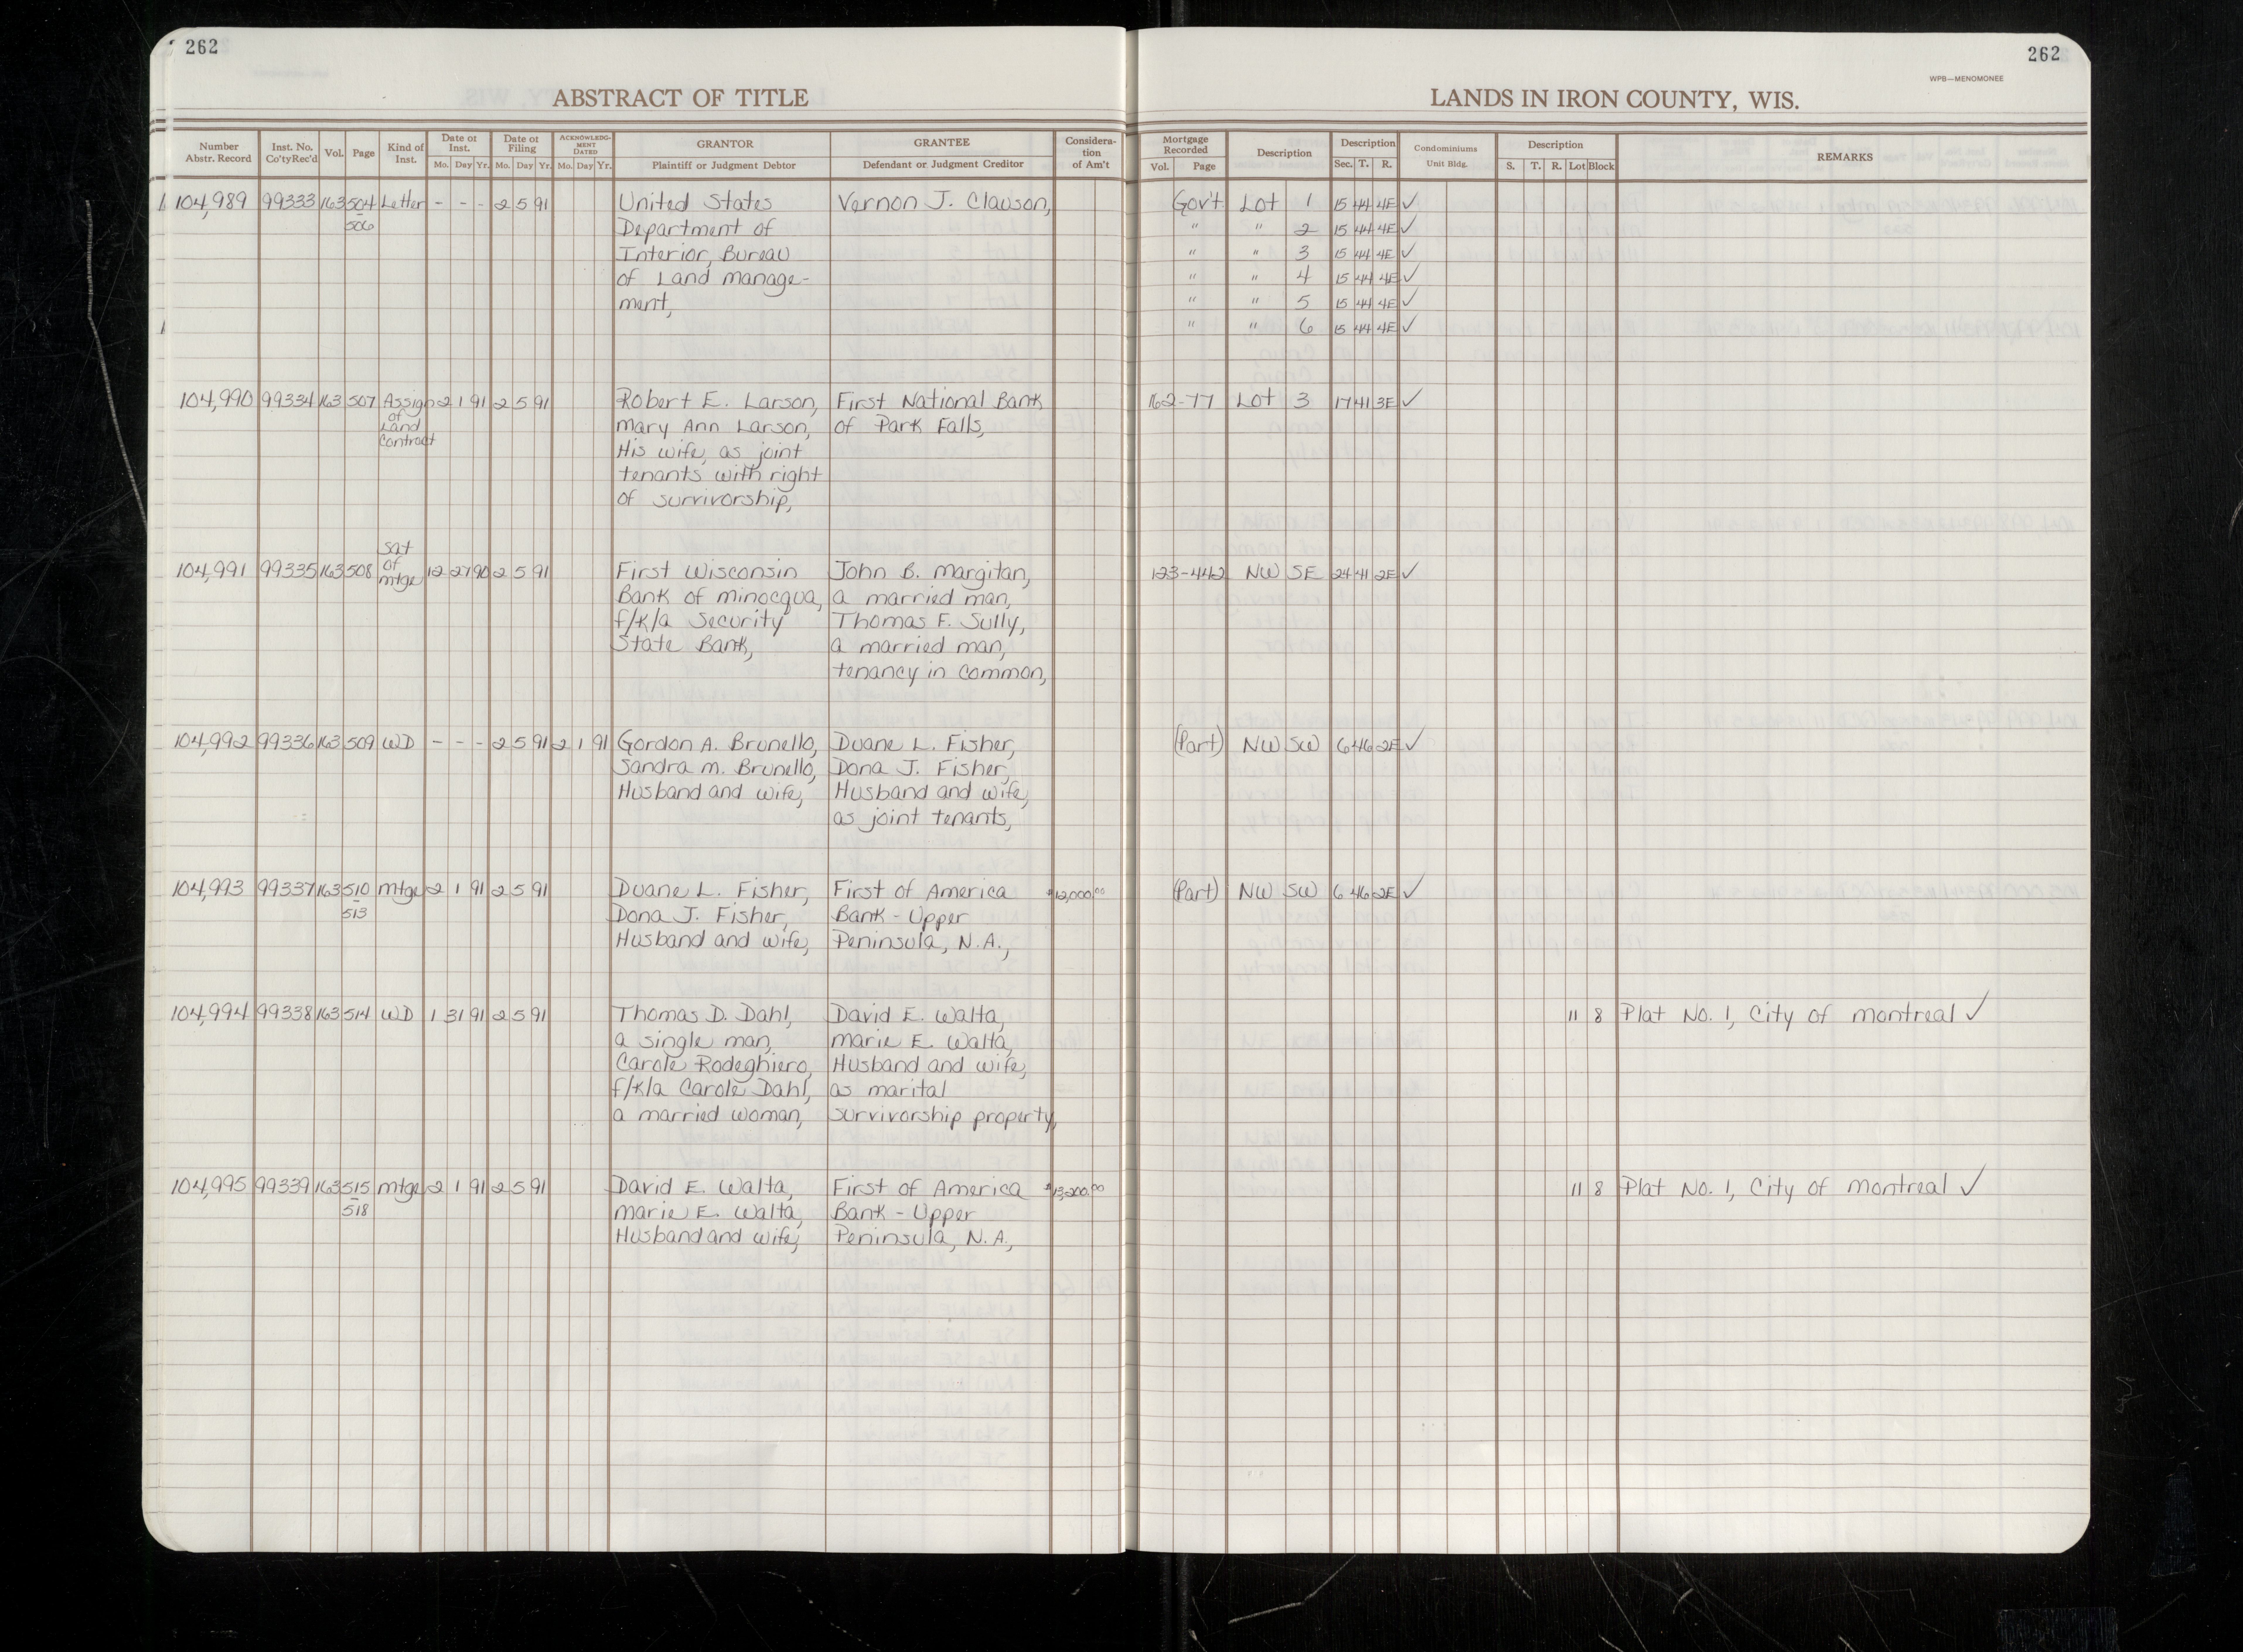 262
262
WPB—MENOMONEE
ABSTRACT OF TITLE
LANDS IN IRON COUNTY, WIS.
Number Abstr. Record
Inst. No. Co'tyRec'd
Vol.
Page
Kind of Inst.
Date of Inst.
Mo. Day Yr.
Date of Filing
Mo. Day Yr.
ACKNOWLEDG-MENT DATED
Mo. Day Yr.
GRANTOR
Plaintiff or Judgment Debtor
GRANTEE
Defendant or Judgment Creditor
Considera-tion of Am't
Mortgage Recorded
Vol. Page
Description
Description
Sec. T. R.
Condominiums
Unit Bldg.
Description
S. T. R. Lot Block
REMARKS
104,989 99333 163 504 Letter - - - 2 5 91 United States Vernon J. Clawson, Gov't Lot 1 15 44 4E ✓
506 Department of " " 2 15 44 4E ✓
Interior, Bureau " " 3 15 44 4E ✓
of Land manage- " " 4 15 44 4E ✓
ment, " " 5 15 44 4E ✓
" " 6 15 44 4E ✓
104,990 99334 163 507 Assign 2 1 91 2 5 91 Robert E. Larson, First National Bank 162-77 Lot 3 17 41 3E ✓
of Land Contract Mary Ann Larson, of Park Falls,
His wife, as joint
tenants with right
of survivorship,
Sat of
104,991 99335 163 508 mtge 12 27 90 2 5 91 First Wisconsin John B. Margitan, 123-442 NW SE 24 41 2E ✓
Bank of minocqua, a married man,
f/k/a Security Thomas F. Sully,
State Bank, a married man,
tenancy in common,
104,992 99336 163 509 WD - - - 2 5 91 2 1 91 Gordon A. Brunello, Duane L. Fisher, (Part) NW SW 6 46 2E ✓
Sandra M. Brunello, Dona J. Fisher,
Husband and wife, Husband and wife,
as joint tenants,
104,993 99337 163 510 mtge 2 1 91 2 5 91 Duane L. Fisher, First of America $12,000.00 (Part) NW SW 6 46 2E ✓
513 Dona J. Fisher, Bank - Upper
Husband and wife, Peninsula, N.A.,
104,994 99338 163 514 WD 1 31 91 2 5 91 Thomas D. Dahl, David E. Walta, 11 8 Plat No. 1, City of Montreal ✓
a single man, Marie E. Walta,
Carole Rodeghiero, Husband and wife,
f/k/a Carole Dahl, as marital
a married woman, survivorship property,
104,995 99339 163 515 mtge 2 1 91 2 5 91 David E. Walta, First of America $13,200.00 11 8 Plat No. 1, City of Montreal ✓
518 Marie E. Walta, Bank - Upper
Husband and wife, Peninsula, N.A.,